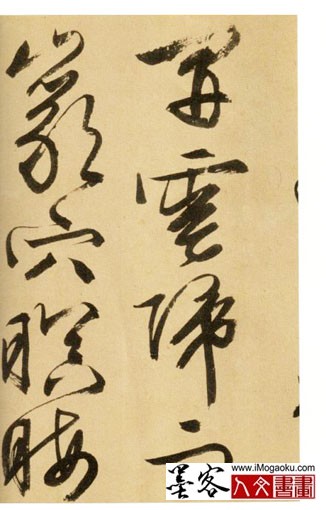 開雲歸而
巖穴暝晦
www.iMogaoku.com
墨客
人文書畫